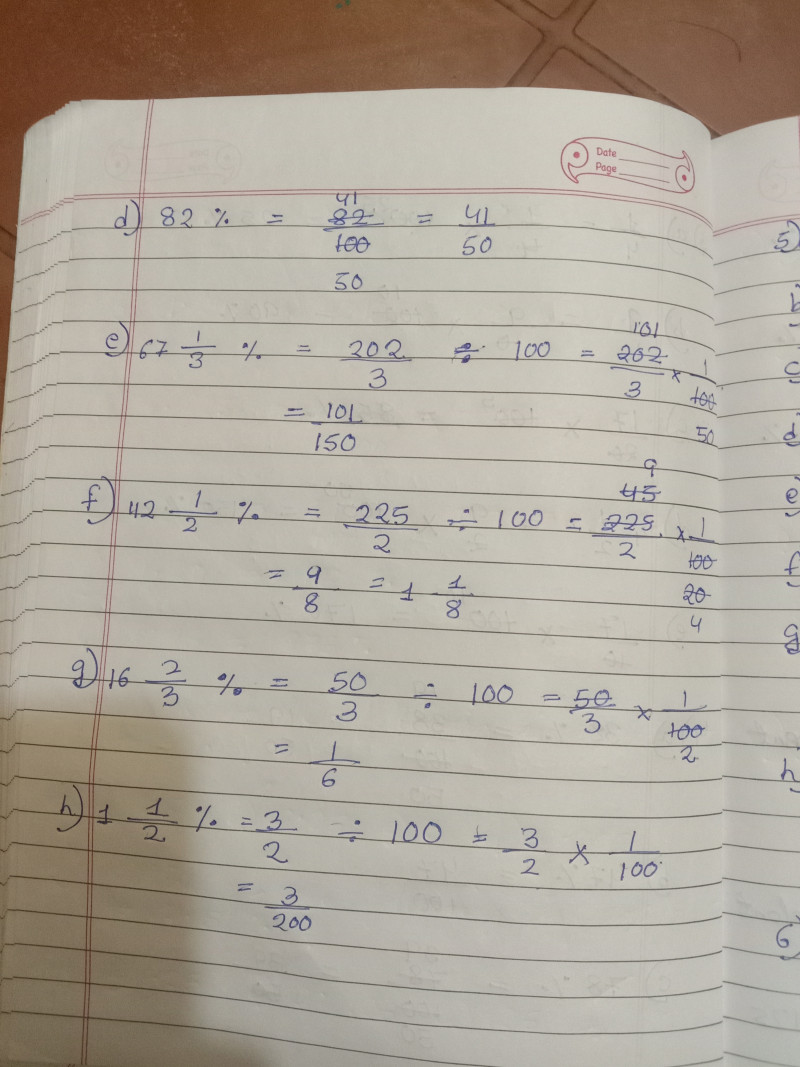 Date
Page
41
d) 82 % = 82/100 = 41/50
50
101
e) 67 1/3 % = 202/3 ÷ 100 = 202/3 × 1/100
= 101/150
50
9
45
f) 42 1/2 % = 225/2 ÷ 100 = 225/2 × 1/100
= 9/8 = 1 1/8
20
4
g) 16 2/3 % = 50/3 ÷ 100 = 50/3 × 1/100
2
= 1/6
h) 1 1/2 % = 3/2 ÷ 100 = 3/2 × 1/100
= 3/200
5)
b
c
d
e)
f
g
h
6)